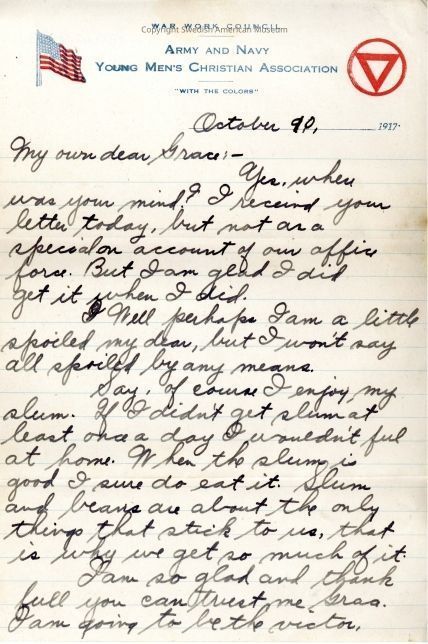 WAR WORK COUNCIL
Copyright Swedish American Museum
ARMY AND NAVY
YOUNG MEN'S CHRISTIAN ASSOCIATION
"WITH THE COLORS"
October 10, 1917.
My own dear Grace:-
Yes, when
was your mind? I receivd your
letter today, but not as a
special on account of our office
force. But I am glad I did
get it when I did.
Well perhaps I am a little
spoiled my dear, but I won't say
all spoiled by any means.
Say, of course I enjoy my
slum. If I didn't get slum at
least once a day I wouldn't feel
at home. When the slum is
good I sure do eat it. Slum
and beans are about the only
things that stick to us, that
is why we get so much of it.
I am so glad and thank
full you can trust me Grace.
I am going to be the victor,